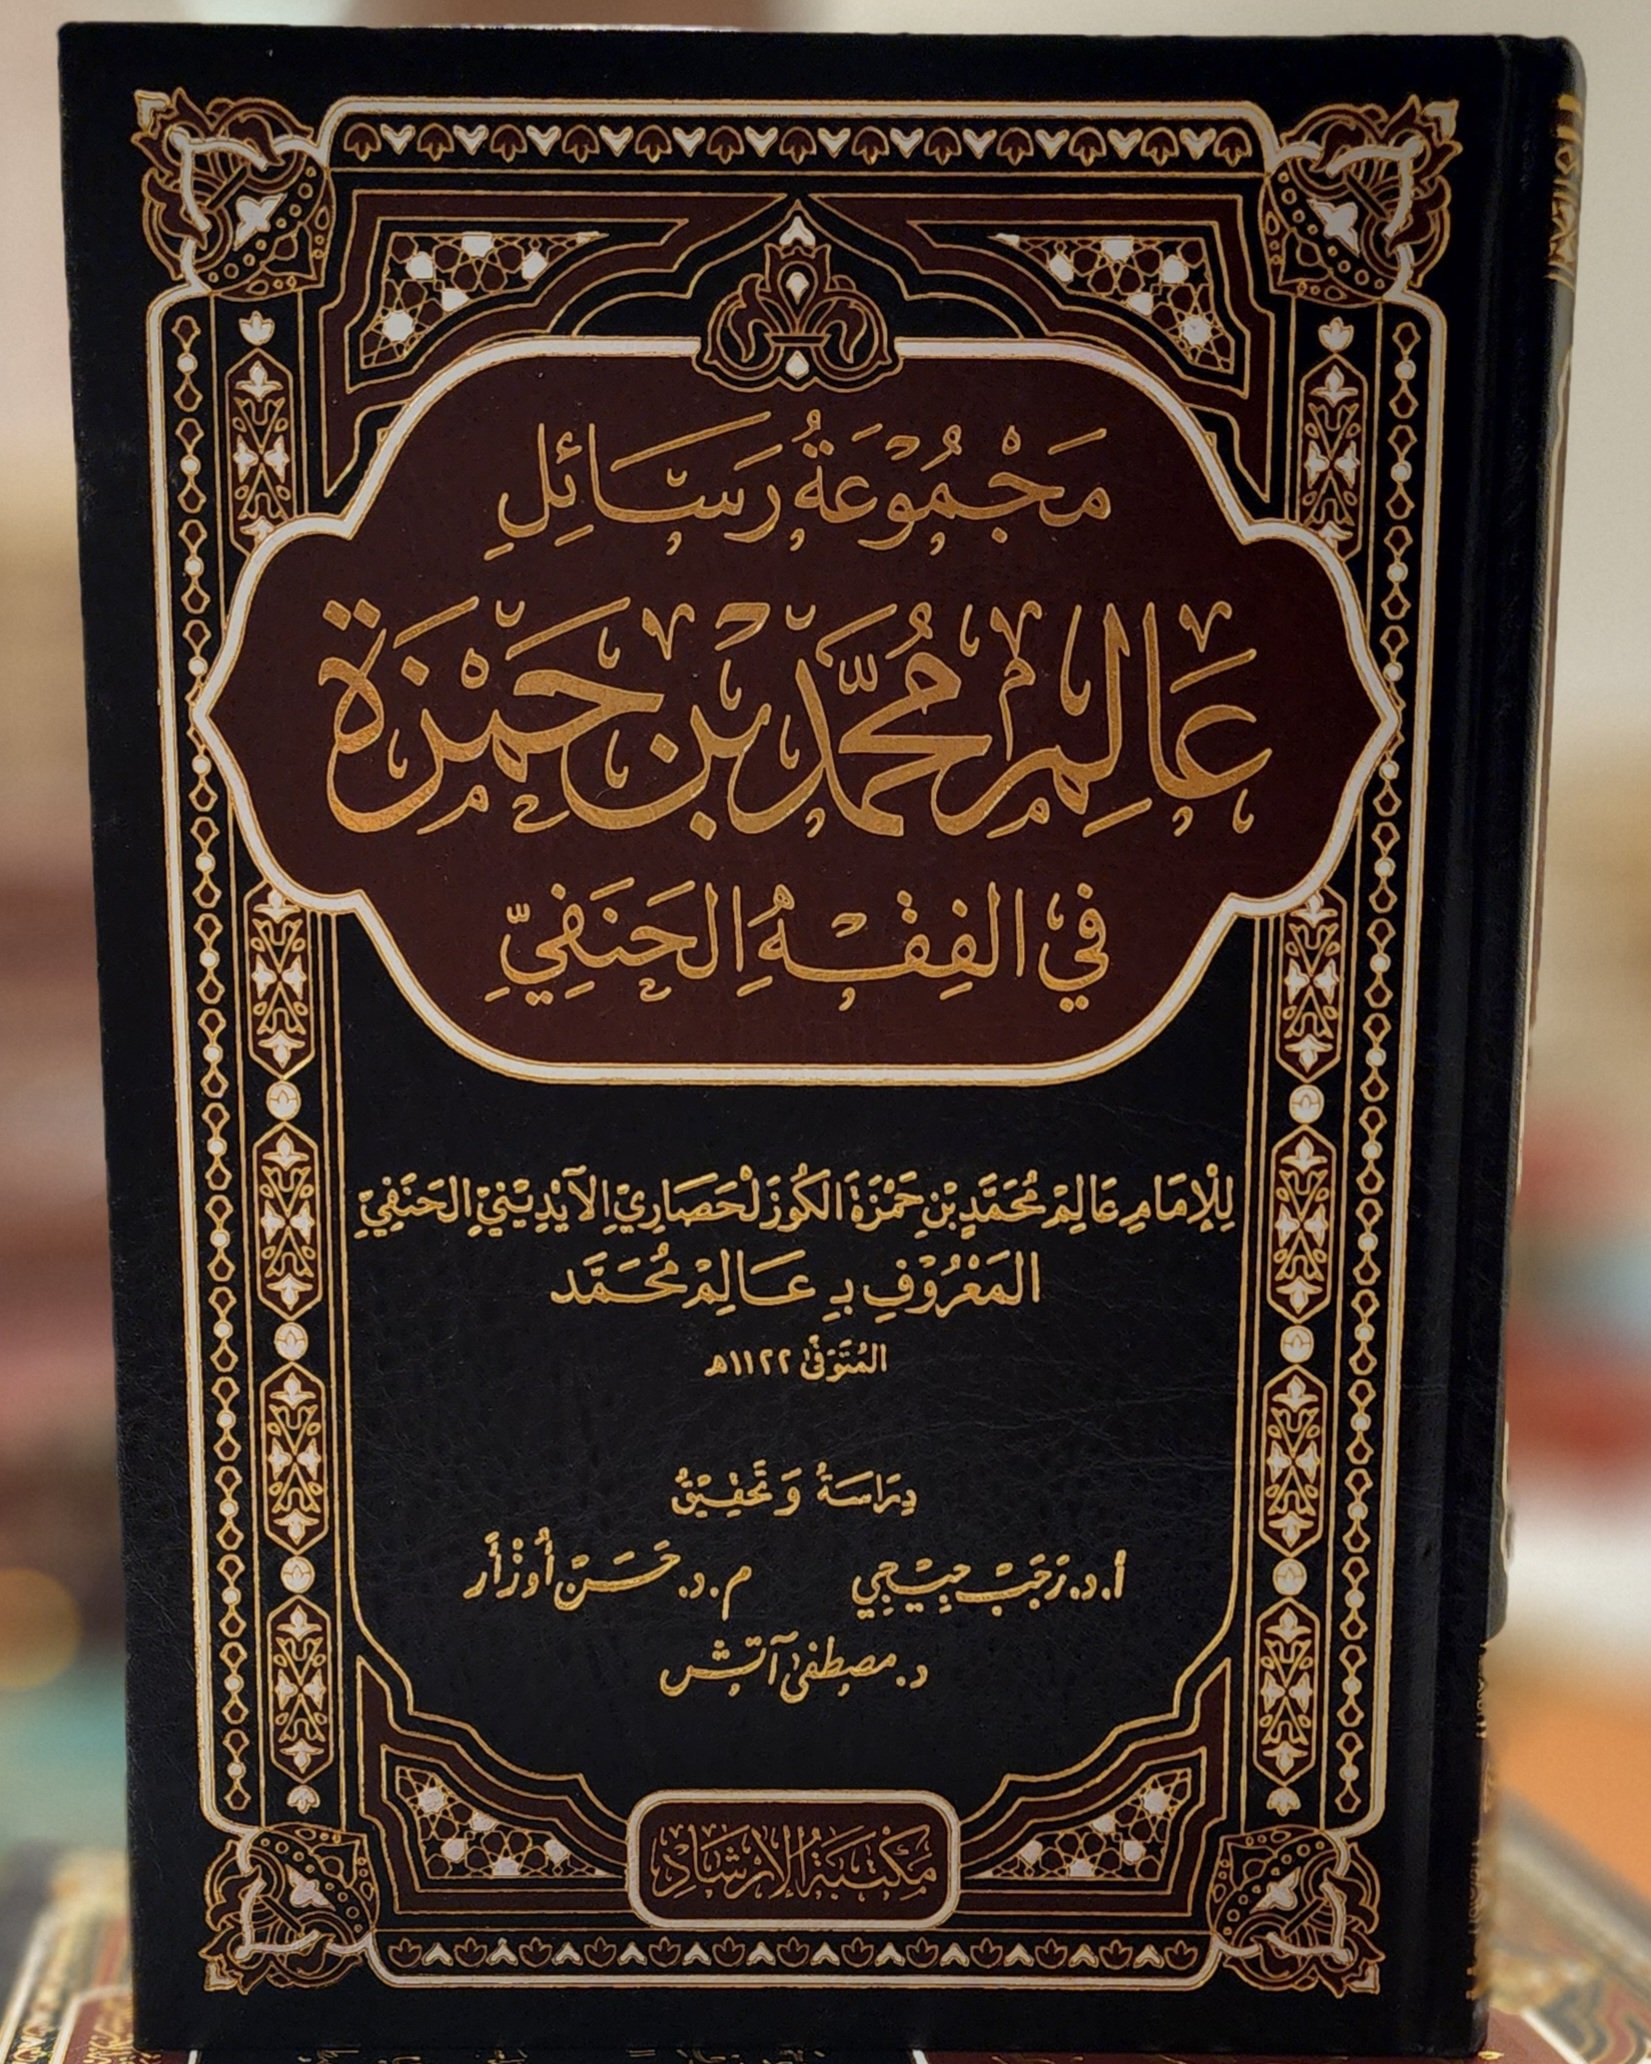 مَجْمُوْعَةُ رَسَائِلِ
عَالِمْ مُحَمَّدْ بْنِ حَمْزَةَ
فِي الْفِقْهِ الحَنَفِيِّ
لِلْإِمَامِ عَالِمْ مُحَمَّدِ بْنِ حَمْزَةَ الكُوزَلْحَصَارِيِّ الآيْدِيْنِيِّ الحَنَفِيِّ
المَعْرُوْفِ بِـ عَالِمْ مُحَمَّد
المُتَوَفّٰى ١١٢٢هـ
دِرَاسَةُ وَتَحْقِيْقُ
أ.د. رَجَبْ جِيْجِي م.د. حَسَنْ أُوزْأَر
د. مصطفىٰ آتش
مَكْتَبَةُ الإِرْشَادِ